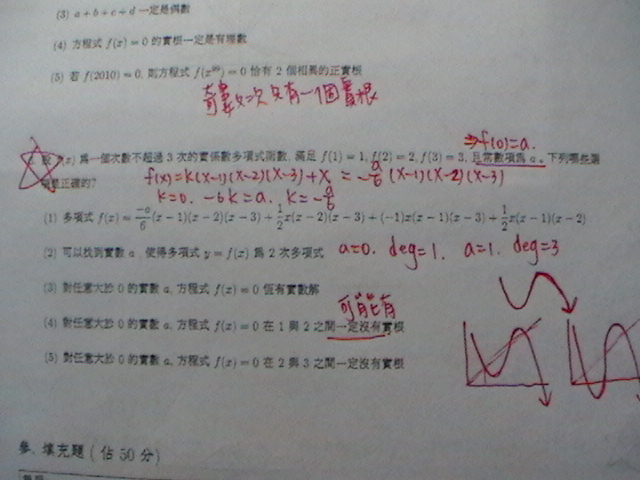 (3) a+b+c+d 一定是偶數
(4) 方程式 f(x)=0 的實根一定是有理數
(5) 若 f(2010)=0, 則方程式 f(x⁹⁹)=0 恰有 2 個相異的正實根
奇數次只有一個實根
⇒f(0)=a.
(x) 為一個次數不超過 3 次的實係數多項式函數, 滿足 f(1)=1, f(2)=2, f(3)=3, 且常數項為 a。下列哪些選
是正確的?
f(x)=k(x-1)(x-2)(x-3)+x, =-a/6 (x-1)(x-2)(x-3)
k=0. -6k=a. k=-a/6
(1) 多項式 f(x)=-a/6(x-1)(x-2)(x-3)+1/2x(x-2)(x-3)+(-1)x(x-1)(x-3)+1/2x(x-1)(x-2)
(2) 可以找到實數 a, 使得多項式 y=f(x) 為 2 次多項式 a=0. deg=1. a=1. deg=3
(3) 對任意大於 0 的實數 a, 方程式 f(x)=0 恆有實數解
可能有
(4) 對任意大於 0 的實數 a, 方程式 f(x)=0 在 1 與 2 之間一定沒有實根
(5) 對任意大於 0 的實數 a, 方程式 f(x)=0 在 2 與 3 之間一定沒有實根
參、填充題 (佔 50 分)